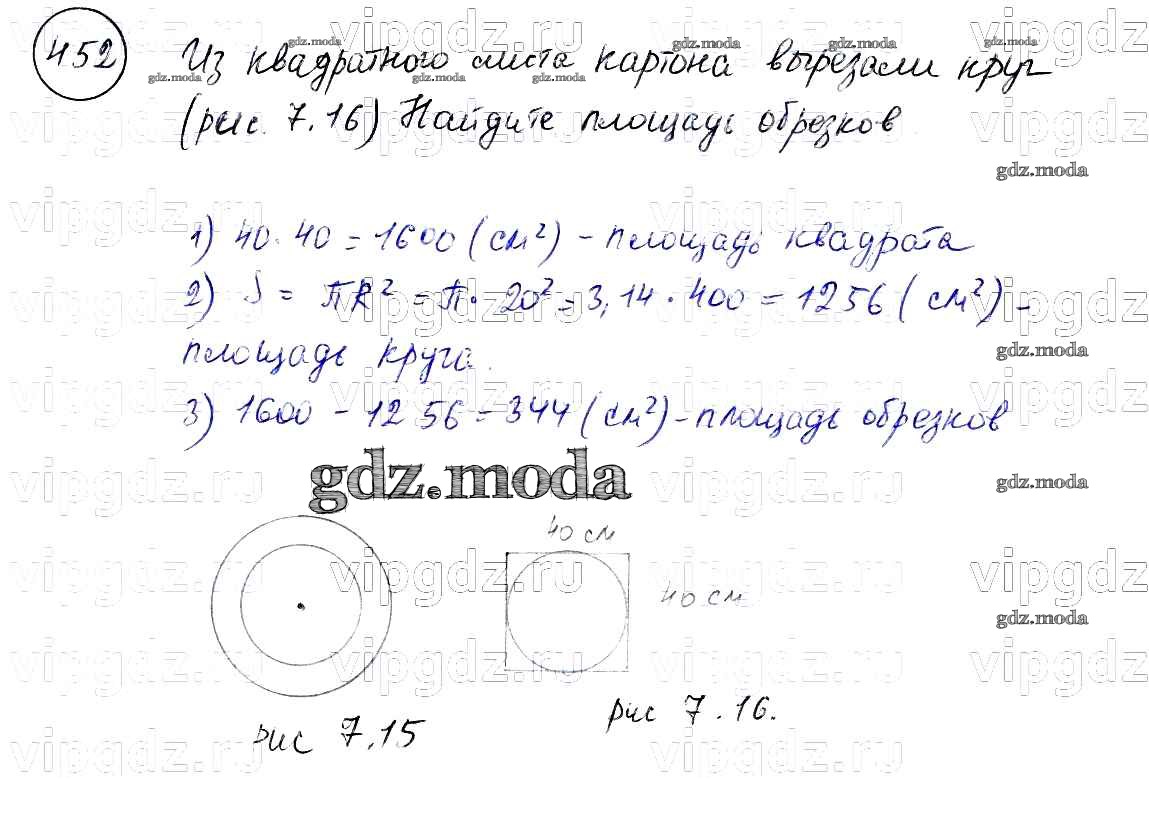 452
Из квадратного листа картона вырезали круг
(рис. 7.16) Найдите площадь обрезков
1) 40 · 40 = 1600 (см²) - площадь квадрата
2) S = πR² = π · 20² = 3,14 · 400 = 1256 (см²) -
площадь круга.
3) 1600 - 1256 = 344 (см²) - площадь обрезков
gdz.moda
40 см
40 см
рис 7.15
рис 7.16.
vipgdz.ru
gdz.moda